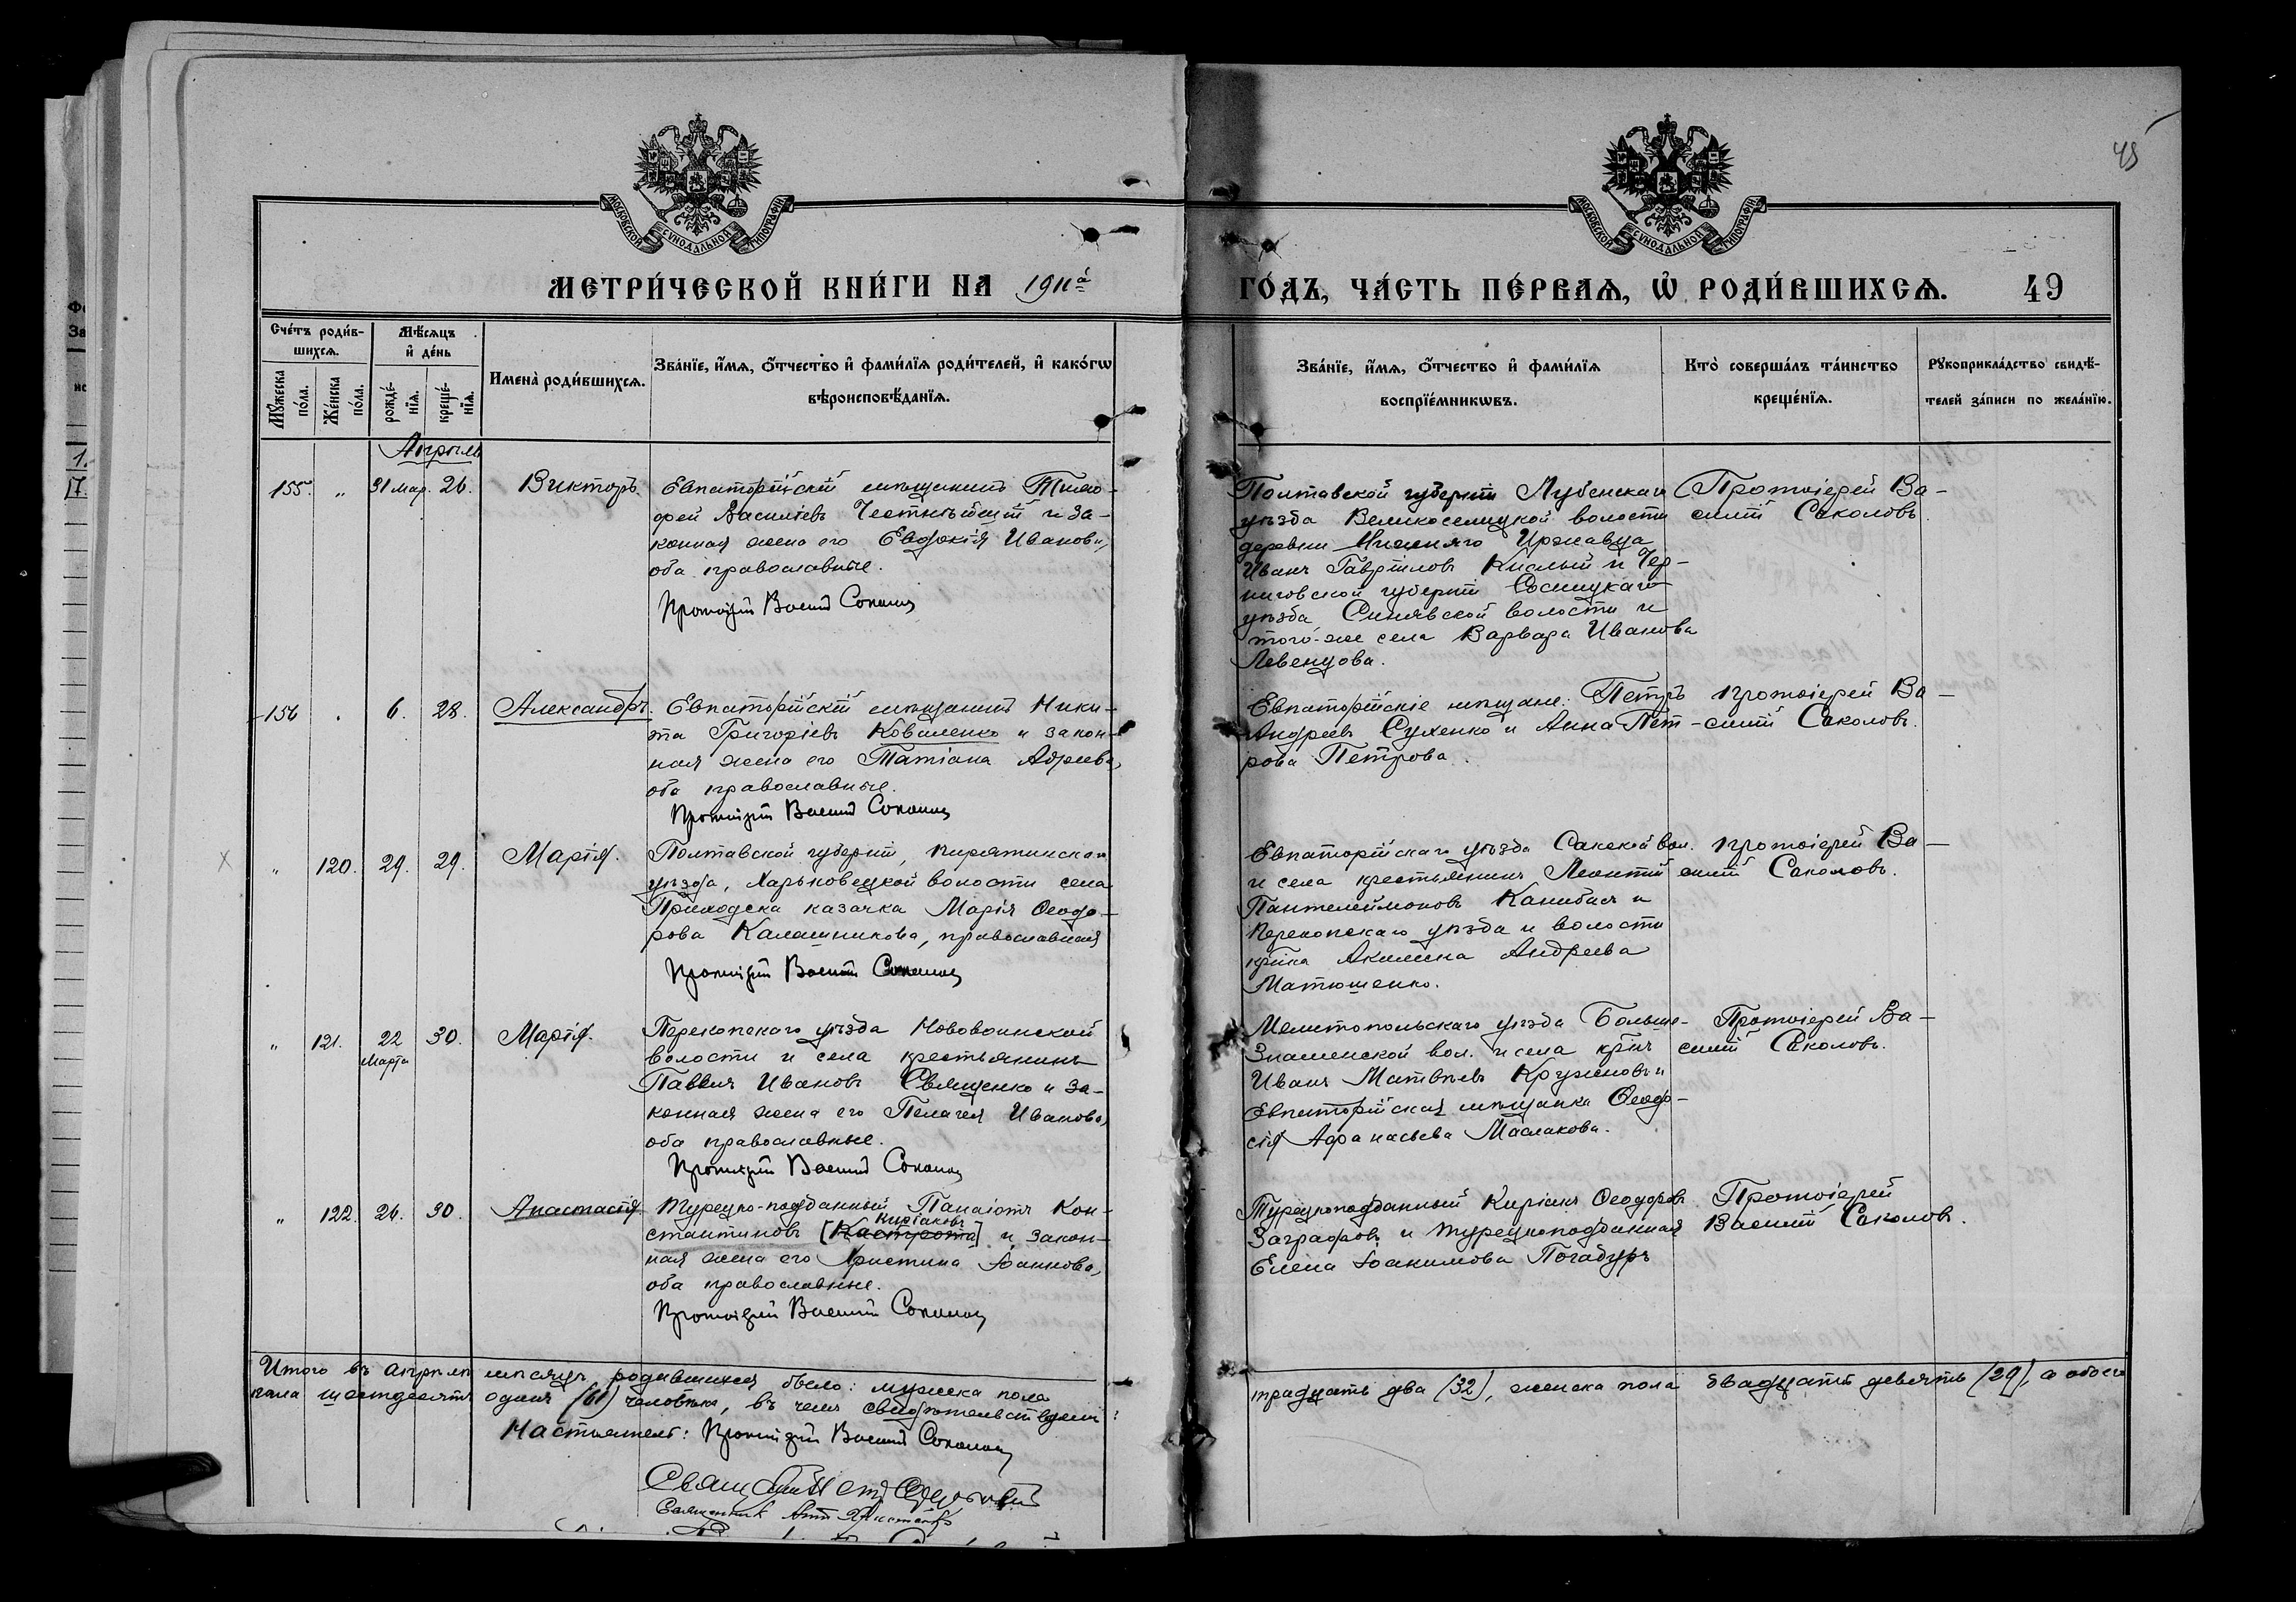 45
МОСКОВСКОЙ СѴНОДАЛЬНОЙ ТИПОГРАФІИ
МОСКОВСКОЙ СѴНОДАЛЬНОЙ ТИПОГРАФІИ
МЕТРИ́ЧЕСКОЙ КНИ́ГИ НА 1911а́
ГО́ДЪ, ЧА́СТЬ ПЕ́РВАЯ, Ѡ҆ РОДИ́ВШИХСЯ. 49
Сче́тъ роди́в-
шихся.
Мѣ́сяцъ
и҆ де́нь
Мꙋ́жеска
по́ла.
Же́нска
по́ла.
рожде́-
нїя.
креще́-
нїя.
Имена̀ роди́вшихся.
Зва́нїе, и҆́мя, ѻ҆́тчество и҆ фами́лїя роди́телей, и҆ како́гѡ
вѣроисповѣ́данїя.
Зва́нїе, и҆́мя, ѻ҆́тчество и҆ фами́лїя
воспрїе́мникѡвъ.
Кто̀ соверша́лъ та́инство
креще́нїя.
Рꙋкоприкла́дство свидѣ́-
телей за́писи по жела́нїю.
Апрѣль
155. „ 31 мар. 26. Викторъ.
Евпаторійскій мѣщанинъ Тимо-
фей Васильевъ Честнѣйшій и за-
конная жена его Евдокія Иванов
оба православные.
Протоіерей Василій Соколовъ
Полтавской губерніи Лубенскаго
уѣзда Великоселицкой волости
деревни Нижняго Иржавца
Иванъ Гавріиловъ Кислый и Чер-
ниговской губерніи Сосницкаго
уѣзда Синявской волости и
того-же села Варвара Иванова
Левенцова.
Протоіерей Ва-
силій Соколовъ.
156 . 6. 28. Александръ.
Евпаторійскій мѣщанинъ Ники-
та Григоріевъ Коваленко и закон-
ная жена его Татіана
оба православные.
Протоіерей Василій Соколовъ
Евпаторійскіе мѣщане: Петръ
Андреевъ Сухенко и Анна Пет-
рова Петрова.
протоіерей Ва-
силій Соколовъ.
„ 120. 29. 29. Марія.
Полтавской губерніи, Пирятинскаго
уѣзда, Харьковецкой волости села
Приходска казачка Марія Ѳеодо-
рова Калашникова, православная
Протоіерей Василій Соколовъ
Евпаторійскаго уѣзда Сакской вол.
и села крестьянинъ Леонтій
Пантелеймоновъ и
Перекопскаго уѣзда и волости
кр-нка Акилина Андреева
Матюшенко.
протоіерей Ва-
силій Соколовъ.
„ 121. 22 Марта 30. Марія.
Перекопскаго уѣзда Нововоинской
волости и села крестьянинъ
Павелъ Ивановъ Священко и за-
конная жена его Пелагея Иванова,
оба православные.
Протоіерей Василій Соколовъ
Мелитопольскаго уѣзда Больше-
Знаменской вол. и села кр-нъ
Иванъ Матвѣевъ Кружновъ и
Евпаторійская мѣщанка Ѳеодо-
сія Афанасьева Маслакова.
Протоіерей Ва-
силій Соколовъ.
„ 122. 26. 30. Анастасія.
Турецко-подданный Панаіотъ Кон-
Киріаковъ
стантиновъ [Кастрота] и закон-
ная жена его Христина Іоаннова,
оба православные.
Протоіерей Василій Соколовъ
Турецкоподданный Киріакъ Ѳеодоровъ
Заграфовъ и турецкоподданная
Елена Іоакимова Погадуръ
Протоіерей
Василій Соколовъ.
Итого въ апрѣлѣ мѣсяцѣ родившихся было: мужеска пола
тридцать два (32), женска пола двадцать девять (29), а обоего
пола шестьдесятъ одинъ (61) человѣкъ, въ чемъ свидѣтельствуемъ:
Настоятель: Протоіерей Василій Соколовъ
Священникъ